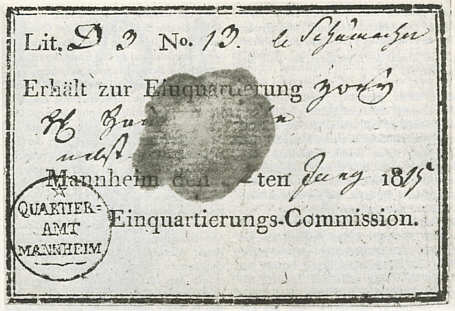 Lit. D 3 No. 13. le Schumacher
Erhält zur Einquartierung zwey
nebst
Mannheim den ten Juny 1815
Einquartierungs-Commission.
QUARTIER-
AMT
MANNHEIM